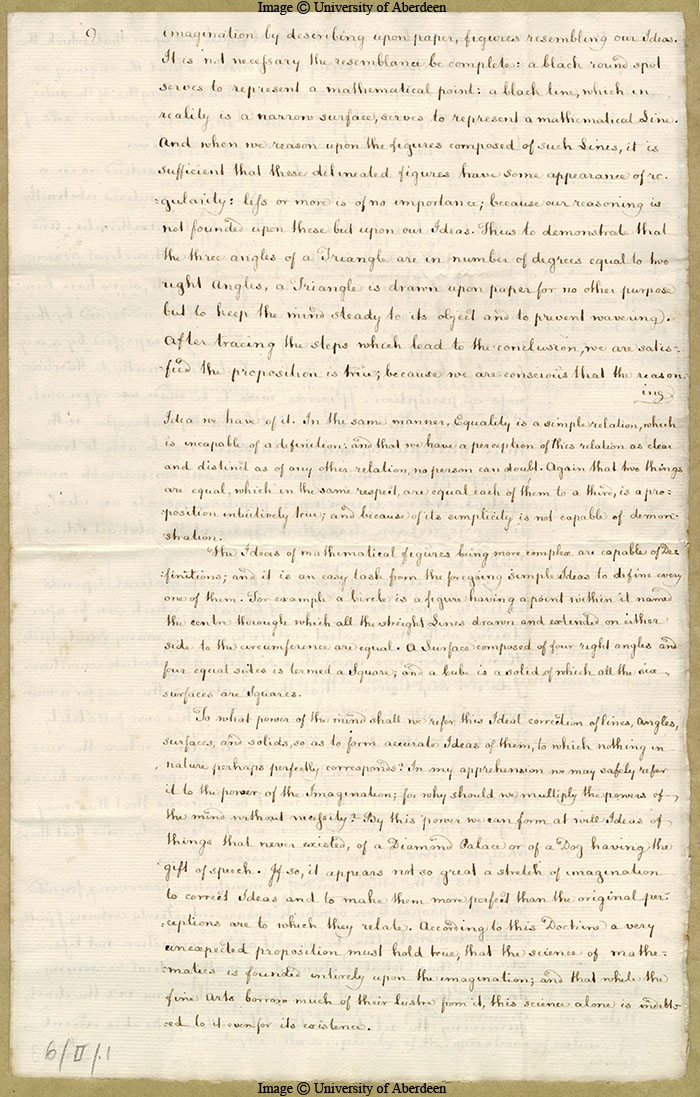 Image © University of Aberdeen
9
imagination by describing upon paper, figures resembling our Ideas.
It is not necessary the resemblance be complete: a black round spot
serves to represent a mathematical point: a black line, which in
reality is a narrow surface, serves to represent a mathematical Line.
And when we reason upon the figures composed of such Lines, it is
sufficient that these delineated figures have some appearance of re-
-gularity: less or more is of no importance; because our reasoning is
not founded upon these but upon our Ideas. Thus to demonstrate that
the three angles of a Triangle are in number of degrees equal to two
right Angles, a Triangle is drawn upon paper for no other purpose
but to keep the mind steady to its object and to prevent wavering).
After tracing the steps which lead to the conclusion, we are satis-
-fied the proposition is true; because we are conscious that the reason-
ing
Idea we have of it. In the same manner, Equality is a simple relation, which
is incapable of a definition: and that we have a perception of this relation as clear
and distinct as of any other relation, no person can doubt. Again that two things
are equal, which in the same respect, are equal each of them to a third, is a pro-
-position intuitively true; and because of its simplicity is not capable of demon-
-stration.
The Ideas of mathematical figures being more complex are capable of De-
-finitions; and it is an easy task from the foregoing simple Ideas to define every
one of them. For example a Circle is a figure having a point within it named
the centre through which all the streight Lines drawn and extended on either
side to the circumference are equal. A Surface composed of four right angles and
four equal sides is termed a Square; and a Cube is a solid of which all the six
surfaces are Squares.
To what power of the mind shall we refer this Ideal correction of lines, Angles,
surfaces, and solids, so as to form accurate Ideas of them, to which nothing in
nature perhaps perfectly corresponds? In my apprehension we may safely refer
it to the power of the Imagination; for why should we multiply the powers of
the mind without necessity? By this power we can form at will Ideas of
things that never existed, of a Diamond Palace or of a Dog having the
gift of speech. If so, it appears not so great a stretch of imagination
to correct Ideas and to make them more perfect than the original per-
-ceptions are to which they relate. According to this Doctrine a very
unexpected proposition must hold true, that the science of mathe-
-matics is founded intirely upon the imagination; and that while the
fine Arts borrow much of their lustre from it, this science alone is indebt-
-ed to it even for its existence.
6/II/1
Image © University of Aberdeen